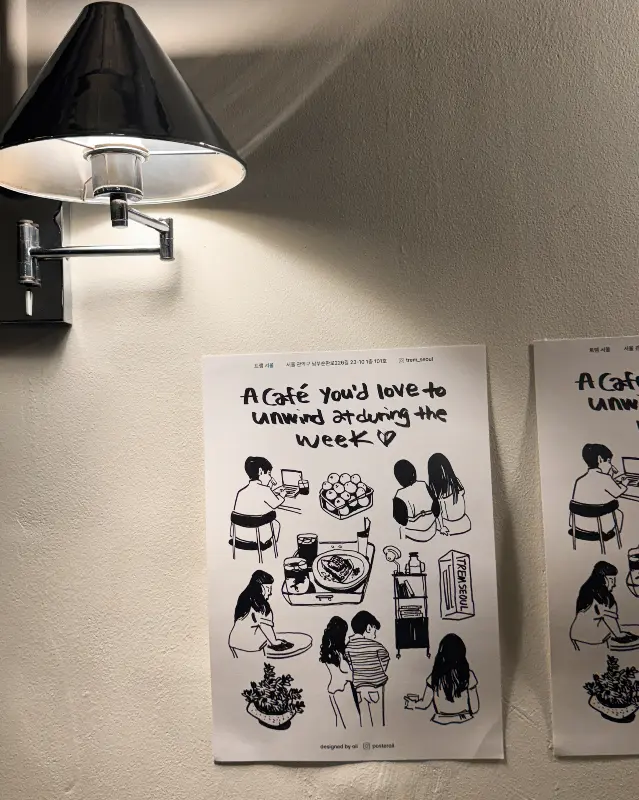 트렘 서울 서울 관악구 남부순환로226길 23-10 1층 101호 trem_seoul
A Café you'd love to
unwind at during the
week
TREM SEOUL
designed by oii posteroii
트렘 서울
A Café
unwind